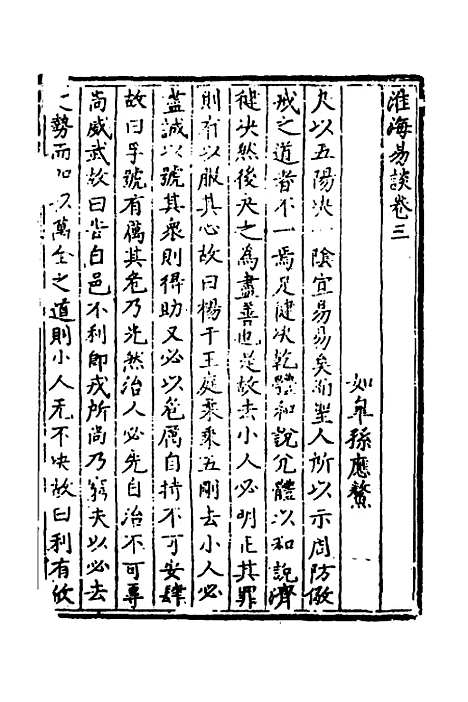 淮海易談卷三
如皋孫應鰲
夬以五陽決一陰宜易易矣而聖人所以示周防儆
戒之道者不一焉是健決乾體和說兌體以和說濟
健決然後夬之為盡善也是故去小人必明正其罪
則有以服其心故曰楊于王庭乘乘五剛去小人必
盡誠以號其衆則得助又必以危厲自持不可安肆
故曰孚號有厲其危乃光然治人必先自治不可專
尚威武故曰告自邑不利即戎所尚乃窮夫以必去
之勢而加以萬全之道則小人无不決故曰利有攸